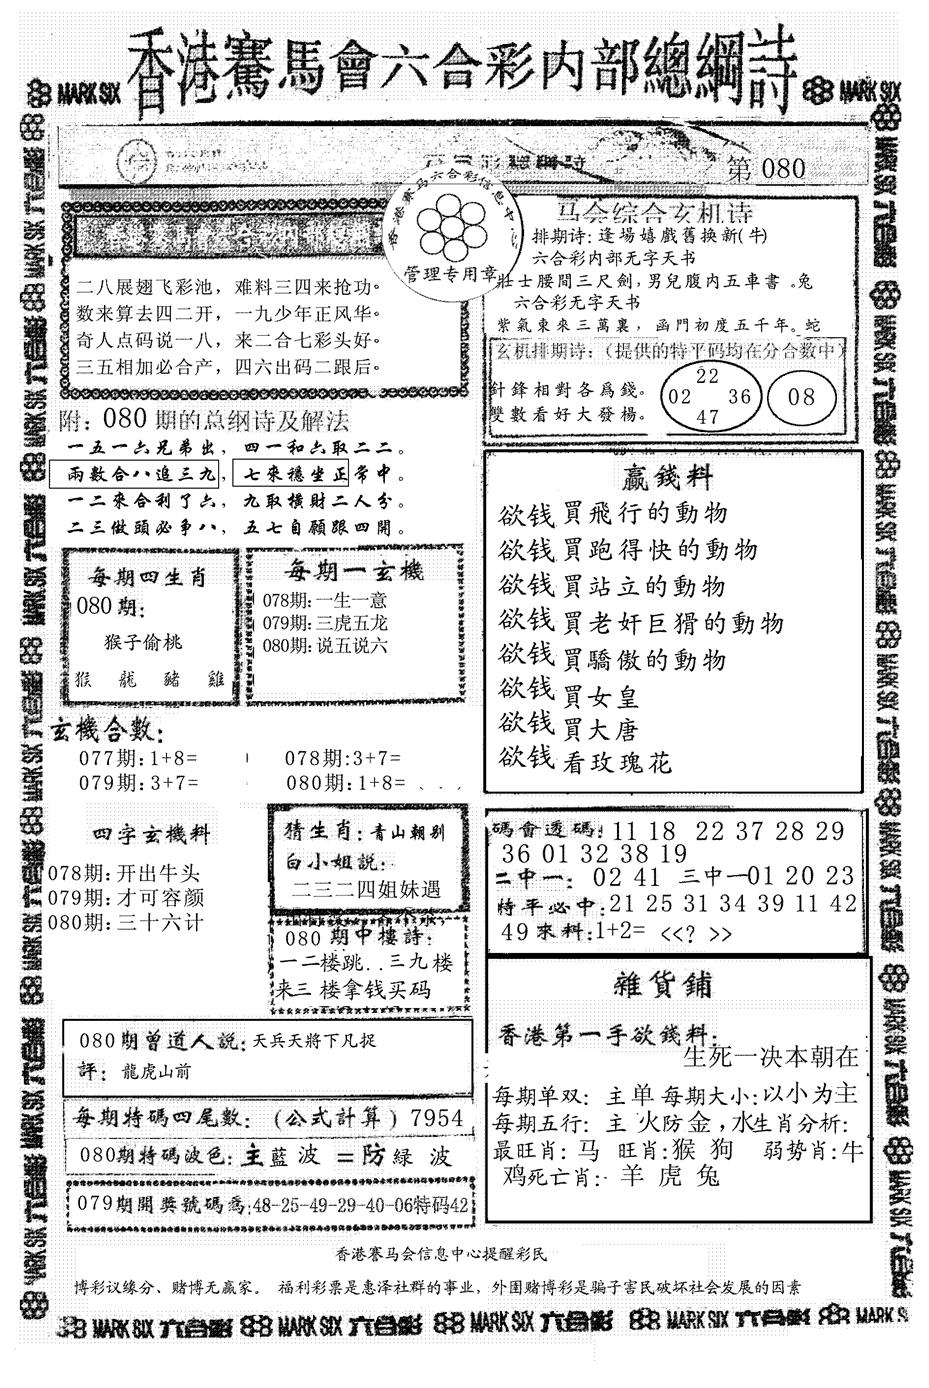 香港賽馬會六合彩内部總綱詩
MARK SIX
MARK SIX
第 080
香港赛马六合彩信息中心
管理专用章
二八展翅飞彩池，难料三四来抢功。
数来算去四二开，一九少年正风华。
奇人点码说一八，来二合七彩头好。
三五相加必合产，四六出码二跟后。
马会综合玄机诗
排期诗：逢場嬉戲舊换新(牛)
六合彩内部无字天书
壯士腰間三尺劍,男兒腹内五車書。兔
六合彩无字天书
紫氣東來三萬裏，函門初度五千年。蛇
玄机排期诗：(提供的特平码均在分合数中)
針鋒相對各爲錢。
雙數看好大發楊。
22
02 36
47
08
附：080期的总纲诗及解法
一五一六兄弟出，四一和六取二二。
兩數合八追三九，七來穩坐正常中。
一二來合利了六，九取横財二人分。
二三做頭必事八，五七自願跟四開。
每期四生肖
080期：
猴子偷桃
猴 龍 豬 雞
每期一玄機
078期：一生一意
079期：三虎五龙
080期：说五说六
赢錢料
欲钱買飛行的動物
欲钱買跑得快的動物
欲钱買站立的動物
欲钱買老奸巨猾的動物
欲钱買驕傲的動物
欲钱買女皇
欲钱買大唐
欲钱看玫瑰花
玄機合數：
077期：1+8=
078期:3+7=
079期：3+7=
080期：1+8=
四字玄機料
078期：开出牛头
079期：才可容颜
080期：三十六计
猜生肖：青山朝别
白小姐説：
二三二四姐妹遇
080期中樓詩：
一二楼跳..三九楼
来三楼拿钱买码
碼會透碼：11 18 22 37 28 29
36 01 32 38 19
二中一：02 41 三中一01 20 23
特平必中：21 25 31 34 39 11 42
49 來料：1+2= <<? >>
雜貨鋪
香港第一手欲錢料：
生死一决本朝在
每期单双：主单 每期大小：以小为主
每期五行：主 火防金，水生肖分析：
最旺肖：马 旺肖：猴 狗 弱势肖：牛
鸡死亡肖：羊 虎 兔
080期曾道人説：天兵天將下凡捉
評：龍虎山前
每期特碼四尾數：(公式計算) 7954
080期特碼波色：主藍波 =防緑 波
079期開獎號碼爲:48-25-49-29-40-06特码42
香港赛马会信息中心提醒彩民
博彩议缘分、赌博无赢家。 福利彩票是惠泽社群的事业，外围赌博彩是骗子害民破坏社会发展的因素
MARK SIX 六合彩 MARK SIX 六合彩 MARK SIX 六合彩 MARK SIX 六合彩 MARK SIX